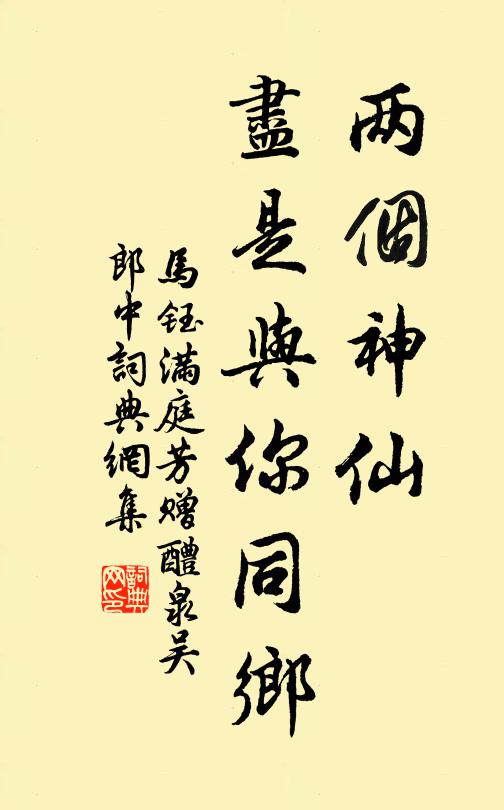 两個神仙
盡是與你同鄉
馬鈺滿庭芳贈醴泉吴
郎中詞典網集
詞典
网印